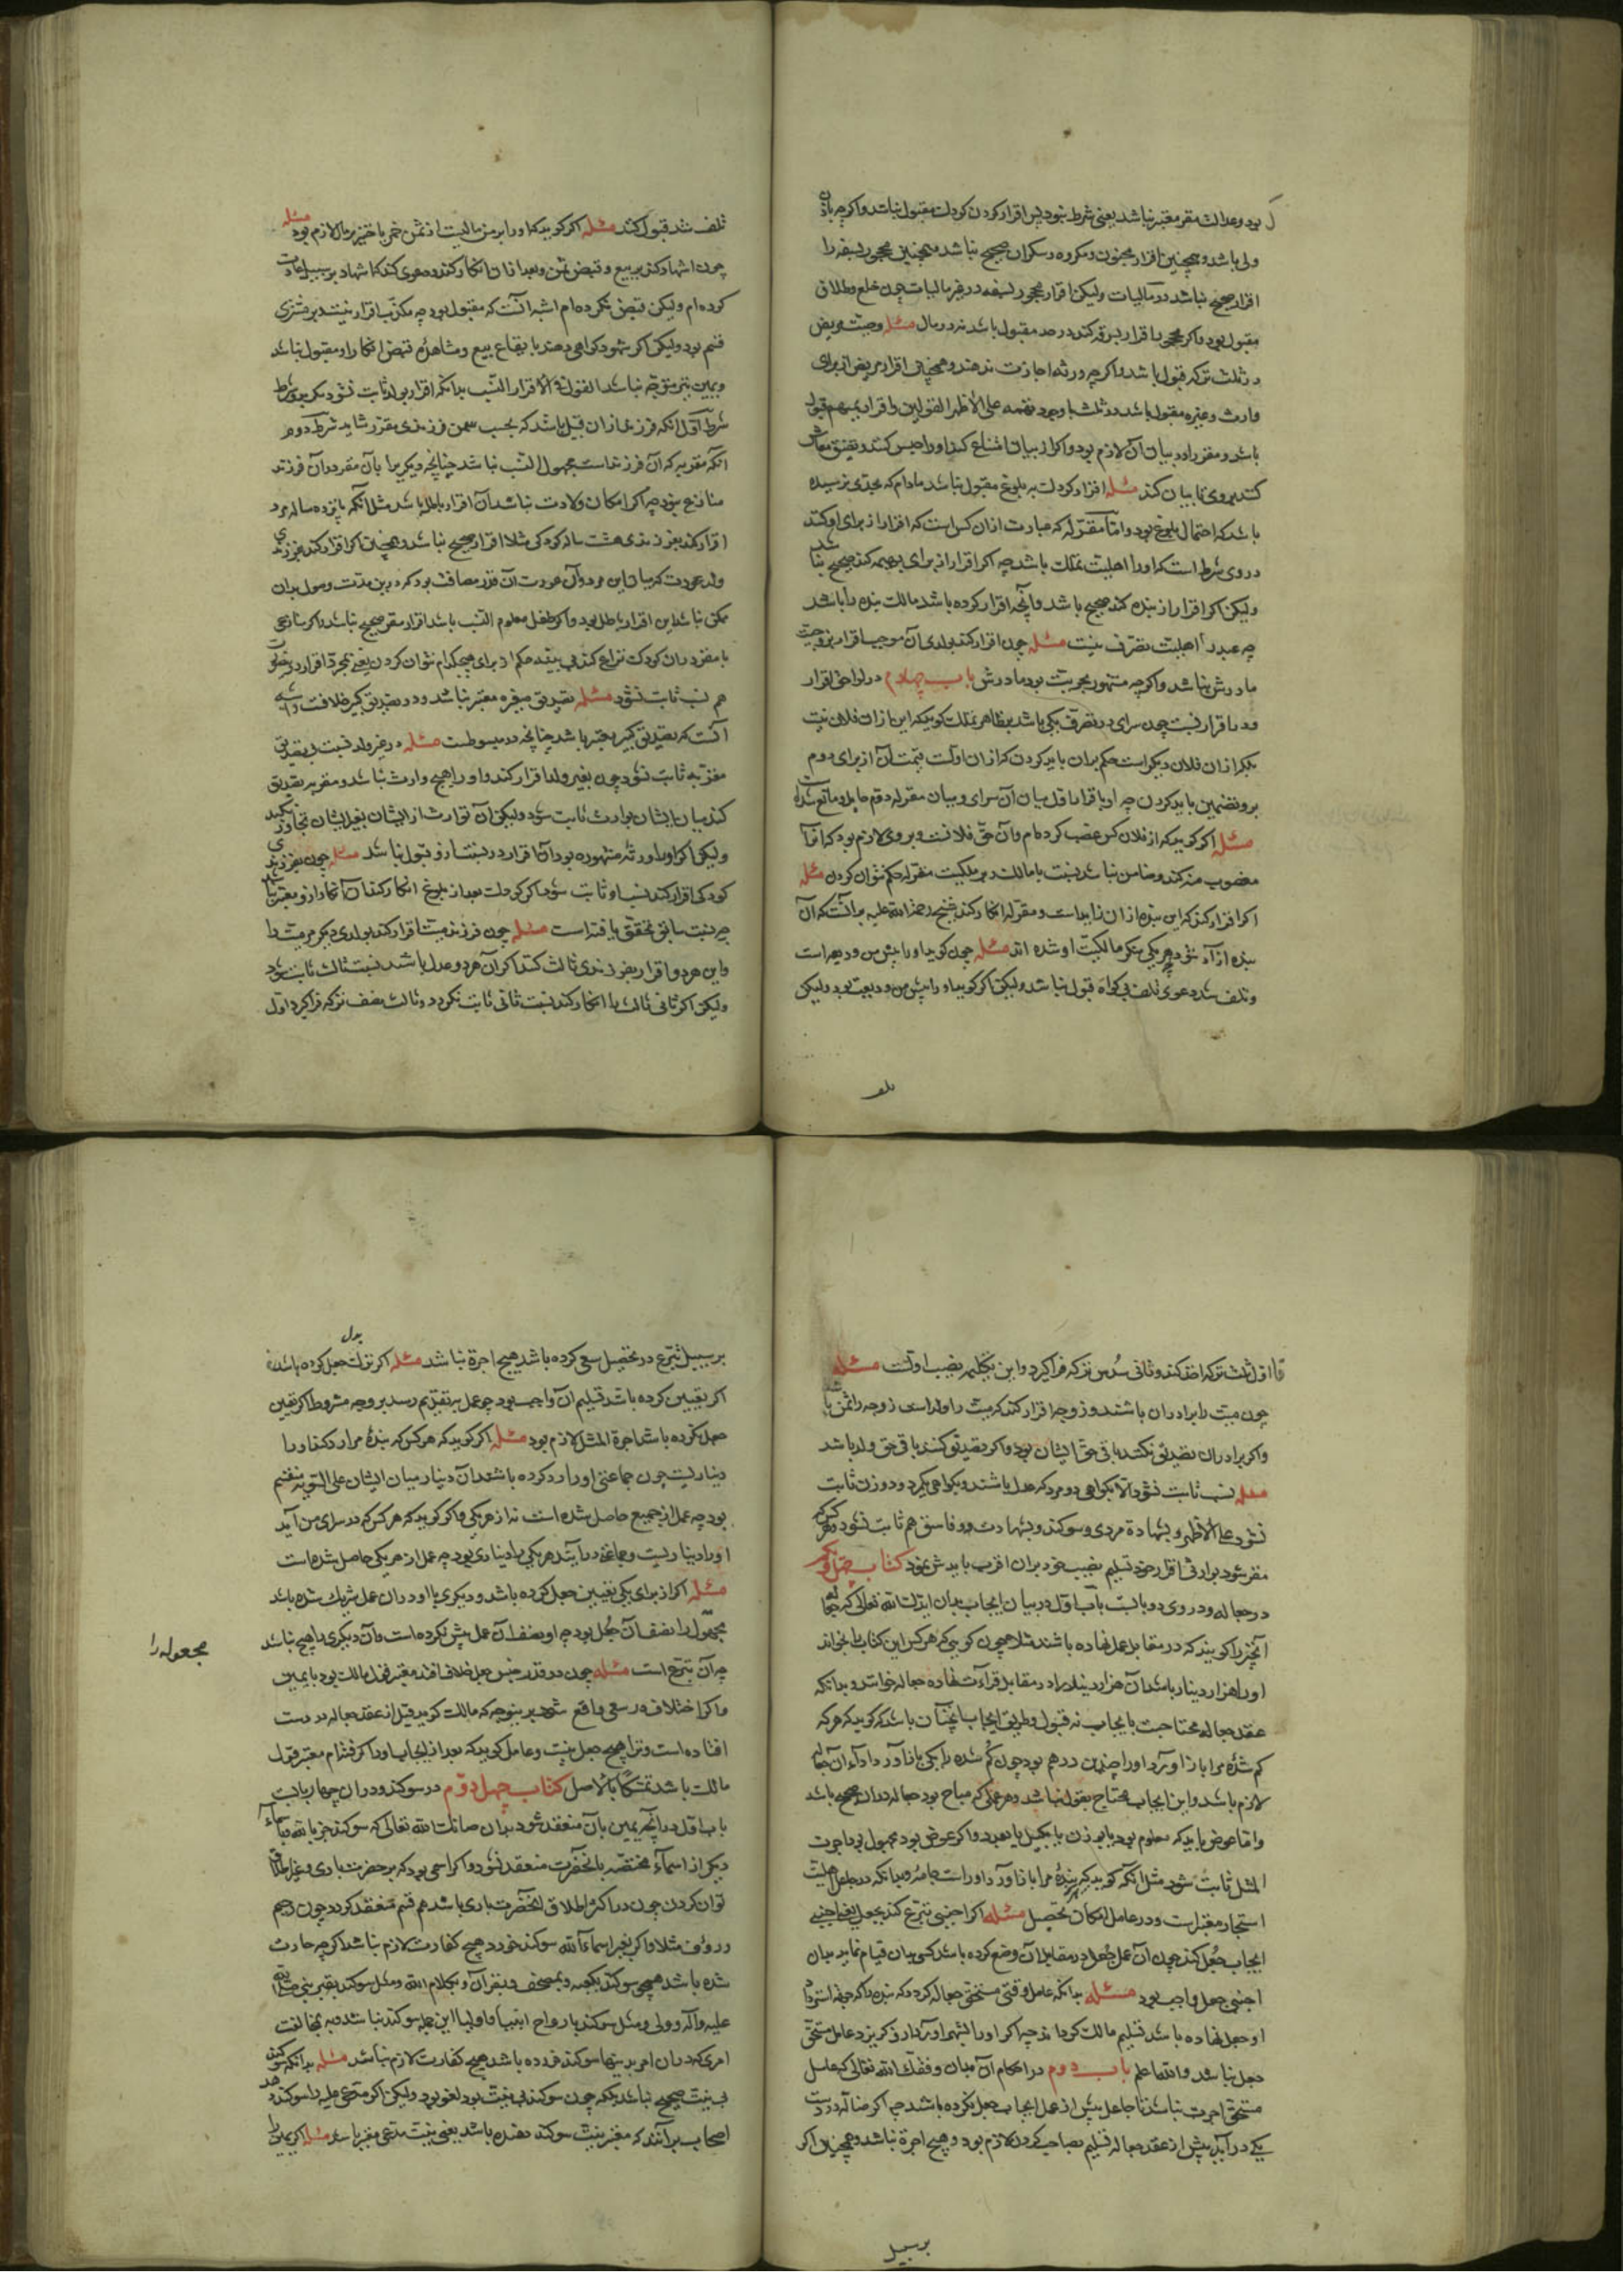 بود و عدالت مقر معتبر نباشد یعنی شرط نبود پس اقرار کردن کودک مقبول نباشد و اکرچه باذن
ولی باشد و همچنین اقرار مجنون و مکره و سکران صحیح نباشد و همچنین محجور بسفه را
اقرار صحیح نباشد در مالیات ولیکن اقرار محجور بسفه در غیر مالیات چون خلع و طلاق
مقبول بود و اکر محجور اقرار بسرقه کند در حد مقبول باشد نه در مال مسئله وصیت مریض
در ثلث ترکه قبول باشد و اکرچه ورثه اجازت ندهند و همچنان اقرار مریض از برای
وارث و غیره مقبول باشد در ثلث با وجود تهمه علی الاظهر القولین و اقرار بمبهم قبول
باشد و مقر را در بیان آن لازم بود و اکر از بیان امتناع کند او را حبس کنند و تضیق معاش
کنند بروی تا بیان کند مسئله اقرار کودک به بلوغ مقبول نباشد مادام که بحدی نرسیده
باشد که احتمال بلوغ بود و اما مقر له که عبارت از ان کس است که اقرار از برای او کند
در وی شرط است که او را اهلیت تملک باشد چه اکر اقرار از برای بهیمه کند صحیح نباشد
ولیکن اکر اقرار از بنده کند صحیح باشد و آنچه اقرار کرده باشد مالک بنده را باشد
چه عبد را اهلیت تصرف نیست مسئله چون اقرار کند بولدی آن موجب اقرار بزوجیت
مادرش نباشد و اکرچه مشهور بحریت بود مادرش باب چهارم در لواحق اقرار
بود باقرار نسب چون سرای در تصرف یکی باشد بر ظاهر تملک کوید که این از ان فلان نیت
بلکه از ان فلان دیکر است حکم بدان باید کردن که از ان اولست و قیمت آن از برای دوم
بر و تضمین باید کردن چه او باقرار اول میان آن سرای و میان مقر له دوم حایل و مانع شد است
مسئله اکر کوید که از فلان کس غصب کرده ام و آن حق فلانست بر وی لازم بود که اقرار
مغصوب منه کند و ضامن نباشد نسبت با مالک و بر ملکیت مقر له حکم نتوان کردن مسئله
اکر اقرار کند که این بنده از ان زید است و مقر له انکار کند شیخ رحمة الله علیه بر آنست که آن
بنده آزاد شود چه هر یکی منکر مالکیت او شده اند مسئله چون کوید او را پیش من ودیعه است
و تلف شد دعوی تلف بی کواه قبول نباشد ولیکن اکر کوید او را پیش من ودیعت بود ولیکن
تلف
تلف شد قبول کنند مسئله اکر کوید که او را بر من مالیست از ثمن خمر یا خنزیر مال لازم بود مسئله
چون اشهاد کند بر بیع و قبض ثمن و بعد از ان انکار کند و دعوی کند که اشهاد بر سبیل عادت
کرده ام ولیکن قبض نکرده ام اشبه آنست که مقبول بود چه مکذب اقرار نیست پس بر مشتری
قسم بود ولیکن اکر شهود کواهی دهند با بقاع بیع و مشاهده قبض انکار او مقبول نباشد
و یمین نیز متوجه نباشد القول فی الاقرار النسب بدانکه اقرار بولد ثابت نشود مکر بدو شرط
شرط اول آنکه فرزند از ان قبیل باشد که بحسب سن فرزندی مقر را شاید شرط دوم
آنکه مقر به که آن فرزند است مجهول النسب نباشد چنانچه دیکری با آن مقر در آن فرزند
منازع بود چه اکر امکان ولادت نباشد آن اقرار باطل باشد مثل آنکه پانزده ساله مرد
اقرار کند بفرزندی هشت ساله کودکی مثلا اقرار صحیح نباشد و همچنان اکر اقرار کند بفرزندی
ولد عورت که میان این مرد و آن عورت آن قدر مسافت بود که درین مدت وصول بدان
ممکن نباشد این اقرار باطل بود و اکر طفل معلوم النسب باشد اقرار مقر صحیح نباشد و اکر منازعی
با مقر در ان کودک نزاع کند بی بینه حکم از برای هیچکدام نتوان کردن یعنی بمجرد اقرار درین صورت
هم نسب ثابت نشود مسئله تصدیق صغیر معتبر نباشد و در تصدیق کبیر خلافست و اشبه
آنست که تصدیق کبیر معتبر باشد چنانچه در مبسوطست مسئله در غیر ولد نسب بتصدیق
مقر به ثابت شود چون بغیر ولد اقرار کند و او را هیچ وارث نباشد و مقر به تصدیق
کند میان ایشان توارث ثابت شود ولیکن آن توارث از ایشان بغیر ایشان تجاوز نکند
ولیکن اکر او را ورثه مشهوره بود آن اقرار در نسب ازو قبول نباشد مسئله چون بفرزندی
کودکی اقرار کند نسب او ثابت شود اکر کودک بعد از بلوغ انکار کند آن انکار ازو معتبر نباشد
چه نسبت سابق تحقق یافته است مسئله چون فرزند میت اقرار کند بولدی دیکر مر میت را
و این هر دو اقرار بفرزندی ثالث کنند اکر آن هر دو عدل باشند نسب ثالث ثابت شود
ولیکن اکر ثانی ثالث را انکار کند نسب ثانی ثابت نکردد و ثالث نصف ترکه فرا کیرد و اول
اول ثلث ترکه اخذ کند و ثانی سدس ترکه فرا کیرد و این تکمله نصیب اولست مسئله
چون میت را برادران باشند و زوجه اقرار کند که میت را ولد است زوجه را ثمن باشد
و اکر برادران تصدیق نکنند باقی حق ایشان بود و اکر تصدیق کنند باقی حق ولد باشد
مسئله نسب ثابت نشود الا بکواهی دو مرد که عدل باشند و بکواهی یکمرد و دو زن ثابت
نشود علی الاظهر و بشهادة مردی و سوکند و بشهادت دو فاسق هم ثابت نشود و هر کس که
مقر شود بوارثی اقرب از خود تسلیم نصیب خود بدان اقرب بایدش نمود کتاب چهل و یکم
در جعاله و در وی دو بابست باب اول در بیان ایجاب بدان ایدک الله تعالی که جعاله
آنچیز را کویند که در مقابل عمل نهاده باشند مثلا چون کویی که هر کس این کتاب را بخواند
او را هزار دینار باشد آن هزار دینار را در مقابل قراءت نهاده جعاله خوانند و بدانکه
عقد جعاله محتاجست بایجاب نه قبول و طریق ایجاب آنچنان باشد که کوید که هر که
کم شدهٔ مرا باز آورد او را چندین درهم بود چون کم شده را یکی باز آورد اداء آن جعاله
لازم باشد و این ایجاب محتاج بقبول نباشد و هر عملی که مباح بود جعاله در ان صحیح باشد
و اما عوض باید که معلوم بود بوزن یا بکیل یا بعدد و اکر عوض بود مجهول بود اجرت
المثل ثابت شود مثل آنکه کوید که هر که بندهٔ مرا باز آورد او راست جامهٔ و بدانکه در جاعل اهلیت
استجار معتبر است و در عامل امکان تحصیل مسئله اکر اجنبی تبرع کند بجعل یعنی اجنبی
ایجاب جعل کند چون آن عمل که جعل در مقابل آن وضع کرده باشد کسی بدان قیام نماید بدان
اجنبی جعل واجب بود مسئله بدانکه عامل وقتی مستحق جعاله کردد که بنده را که جهة استرداد
او جعل نهاده باشد تسلیم مالک کرداند چه اکر او را بشهر او آرد و او بکریزد عامل مستحق
جعل نباشد و الله اعلم باب دوم در احکام آن بدان وفقک الله تعالی که عامل
مستحق اجرت نباشد تا جاعل پیش از عمل ایجاب جعل نکرده باشد چه اکر ضاله در دست
یکی در آید پیش از عقد جعاله تسلیم بصاحب کردن لازم بود و هیچ اجرة نباشد و همچنان اکر
بر سبیل
بدل
بر سبیل تبرع در تحصیل سعی کرده باشد هیچ اجرة نباشد مسئله اکر ترک جعل کرده باشد
اکر تعیین کرده باشد تسلیم آن واجب بود چو عمل بتقدیم رسد بر وجه مشروط اکر تعین
جعل نکرده باشد اجرة المثل لازم بود مسئله اکر کوید که هر کس که بندهٔ مرا رد کند او را
دیناریست چون جماعتی او را رد کرده باشند آن دینار میان ایشان علی السویه منقسم
بود چه عمل از جمیع حاصل شده است نه از هر یکی و اکر کوید که هر کس که در سرای من آید
او را دیناریست و جماعتی درآیند هر یکی را دیناری بود چه عمل از هر یکی حاصل شده است
مسئله اکر از برای یکی تعیین جعل کرده باشد و دیکری با او در ان عمل شریک شده باشد
مجهول را نصف آن جعل بود چه او نصف آن عمل بیش نکرده است و آن دیکری را هیچ نباشد
مجعول له را
چه آن تبرع است مسئله چون در قدر جنس جعل خلاف افتد معتبر قول مالک بود با یمین
و اکر اختلاف در سعی واقع شود برینوجه که مالک کوید قبل از عقد جعاله در دست
افتاده است و ترا هیچ جعل نیست و عامل کوید که بعد از ایجاب او را کرفته ام معتبر قول
مالک باشد تمسکا بالاصل کتاب چهل دوم در سوکند و در ان چهار بابست
باب اول در آنچه یمین بآن منعقد شود بدان صانک الله تعالی که سوکند جز بالله و باسماء
دیکر از اسماء مختصه بانحضرت منعقد نشود و اکر اسمی بود که بر حضرت باری و غیر اطلاق
توان کردن چون در اکثر اطلاق آنحضرت باری باشد هم قسم منعقد کردد چون رحیم
و رؤف مثلا و اکر بغیر اسماء الله سوکند خورد هیچ کفارت لازم نباشد اکرچه حادث
شده باشد همچو سوکند بکعبه و بمصحف و بقرآن و بکلام الله و مثل سوکند بقبر نبی صلی الله
علیه و آله و ولی و مثل سوکند بارواح انبیا و اولیا این جمله سوکند نباشد و به مخالفت
امری که در ان امر بدینها سوکند خورده باشد هیچ کفارت لازم نباشد مسئله بدانکه سوکند
بی نیت صحیح نباشد بلکه چون سوکند بی نیت بود لغو بود ولیکن اکر مدعی علیه را سوکند دهد
اصحاب برآنند که معتبر نیت سوکند دهنده باشد یعنی نیت مدعی معتبر باشد مسئله اکر یمین را